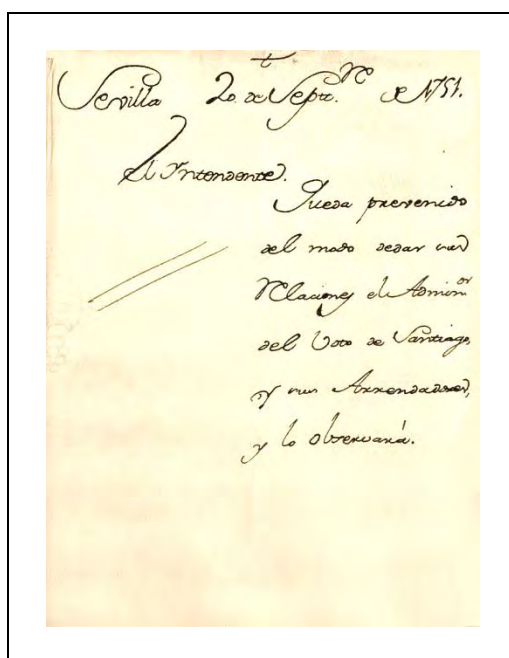 Sevilla 20 de Septre. de 1751.
El Yntendente.
Queda prevenido
del modo de dar las
Relaciones el Adminor.
del Voto de Santiago,
y sus Arrendadores,
y lo observará.